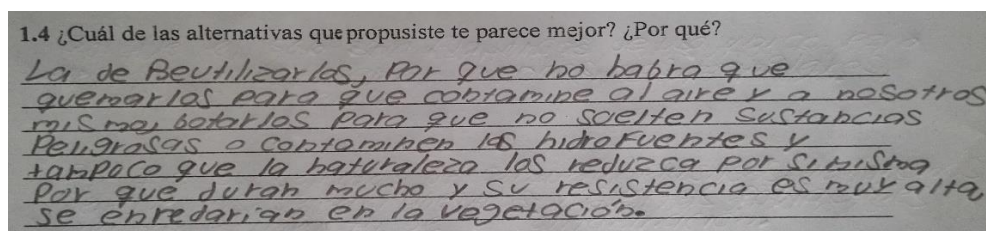 1.4 ¿Cuál de las alternativas que propusiste te parece mejor? ¿Por qué?
La de Reutilizarlas, Por que no habra que
quemarlas para que contamine al aire y a nosotros
mismos, botarlas para que no suelten Sustancias
Peligrosas o contaminen las hidrofuentes y
tampoco que la naturaleza las reduzca por si misma
Por que duran mucho y su resistencia es muy alta
se enredarian en la vegetación.